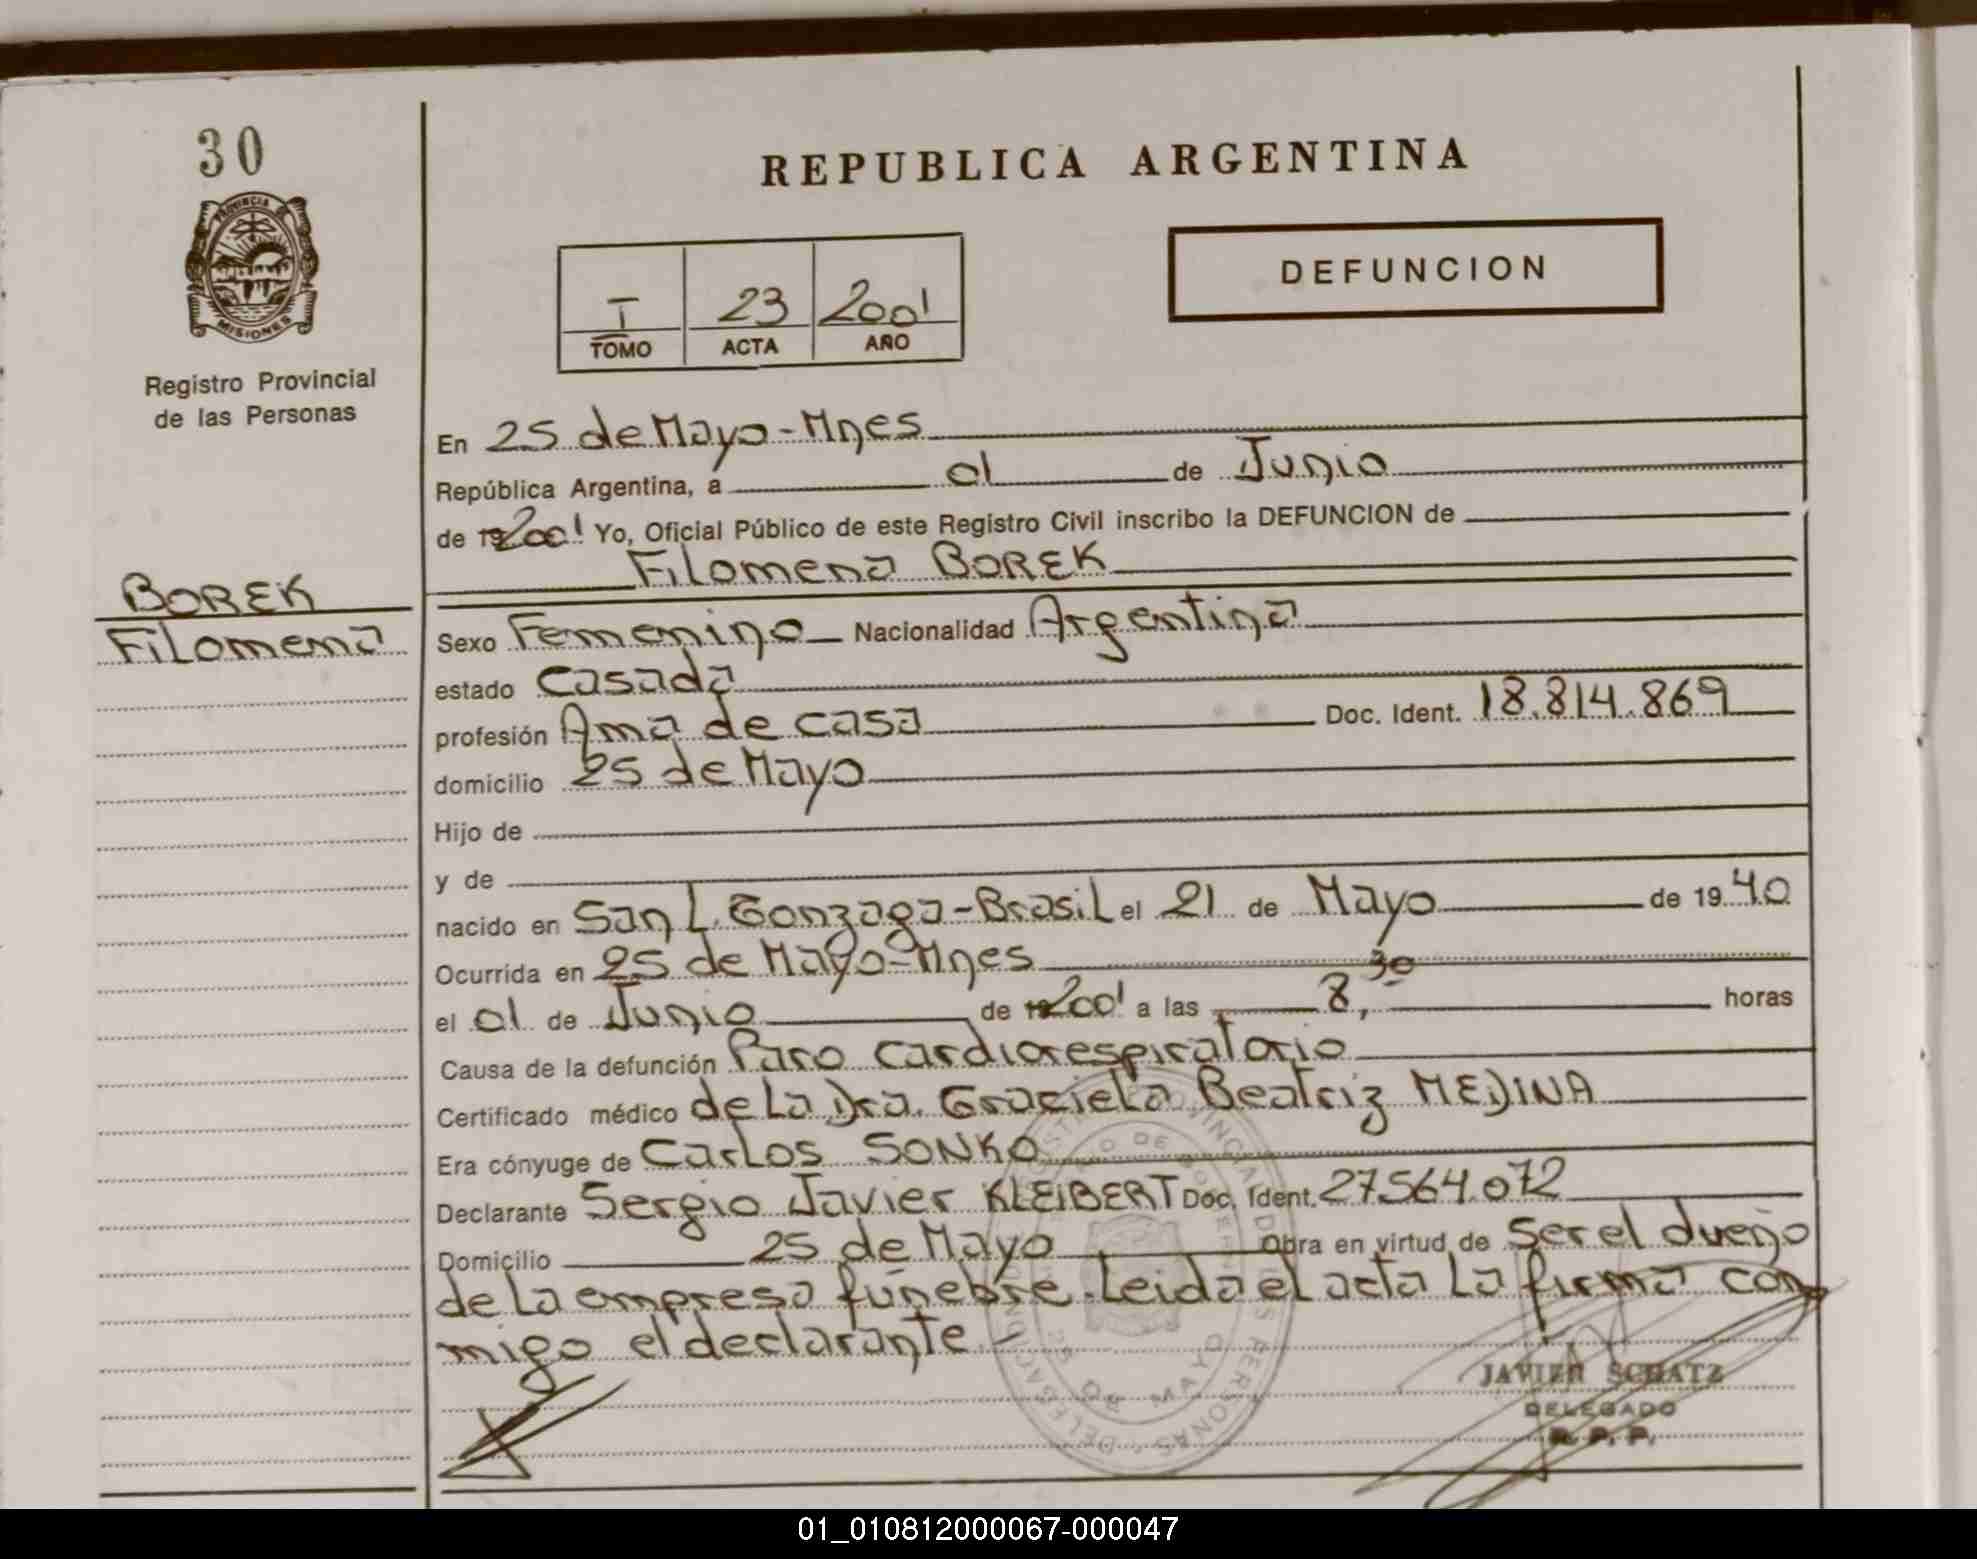 30
PROVINCIA DE
MISIONES
Registro Provincial
de las Personas
REPUBLICA ARGENTINA
DEFUNCION
I 23 2001
TOMO ACTA AÑO
En 25 de Mayo-Mnes
República Argentina, a 01 de Junio
de 2001 Yo, Oficial Público de este Registro Civil inscribo la DEFUNCION de
Filomena BOREK
BOREK
Filomena
Sexo Femenino Nacionalidad Argentina
estado Casada
profesión Ama de casa Doc. Ident. 18.814.869
domicilio 25 de Mayo
Hijo de
y de
nacido en San L. Gonzaga-Brasil el 21 de Mayo de 1940
Ocurrida en 25 de Mayo-Mnes
el 01 de Junio de 2001 a las 8,30 horas
Causa de la defunción Paro cardiorespiratorio
Certificado médico de La Dra. Graciela Beatriz MEDINA
Era cónyuge de Carlos SONKO
Declarante Sergio Javier KLEIBERT Doc. Ident. 27.564.072
Domicilio 25 de Mayo Obra en virtud de ser el dueño
de La empresa fúnebre. Leida el acta La firma con
migo el declarante-
JAVIER SCHATZ
DELEGADO
R. P. P.
25 DE MAYO
01_010812000067-000047